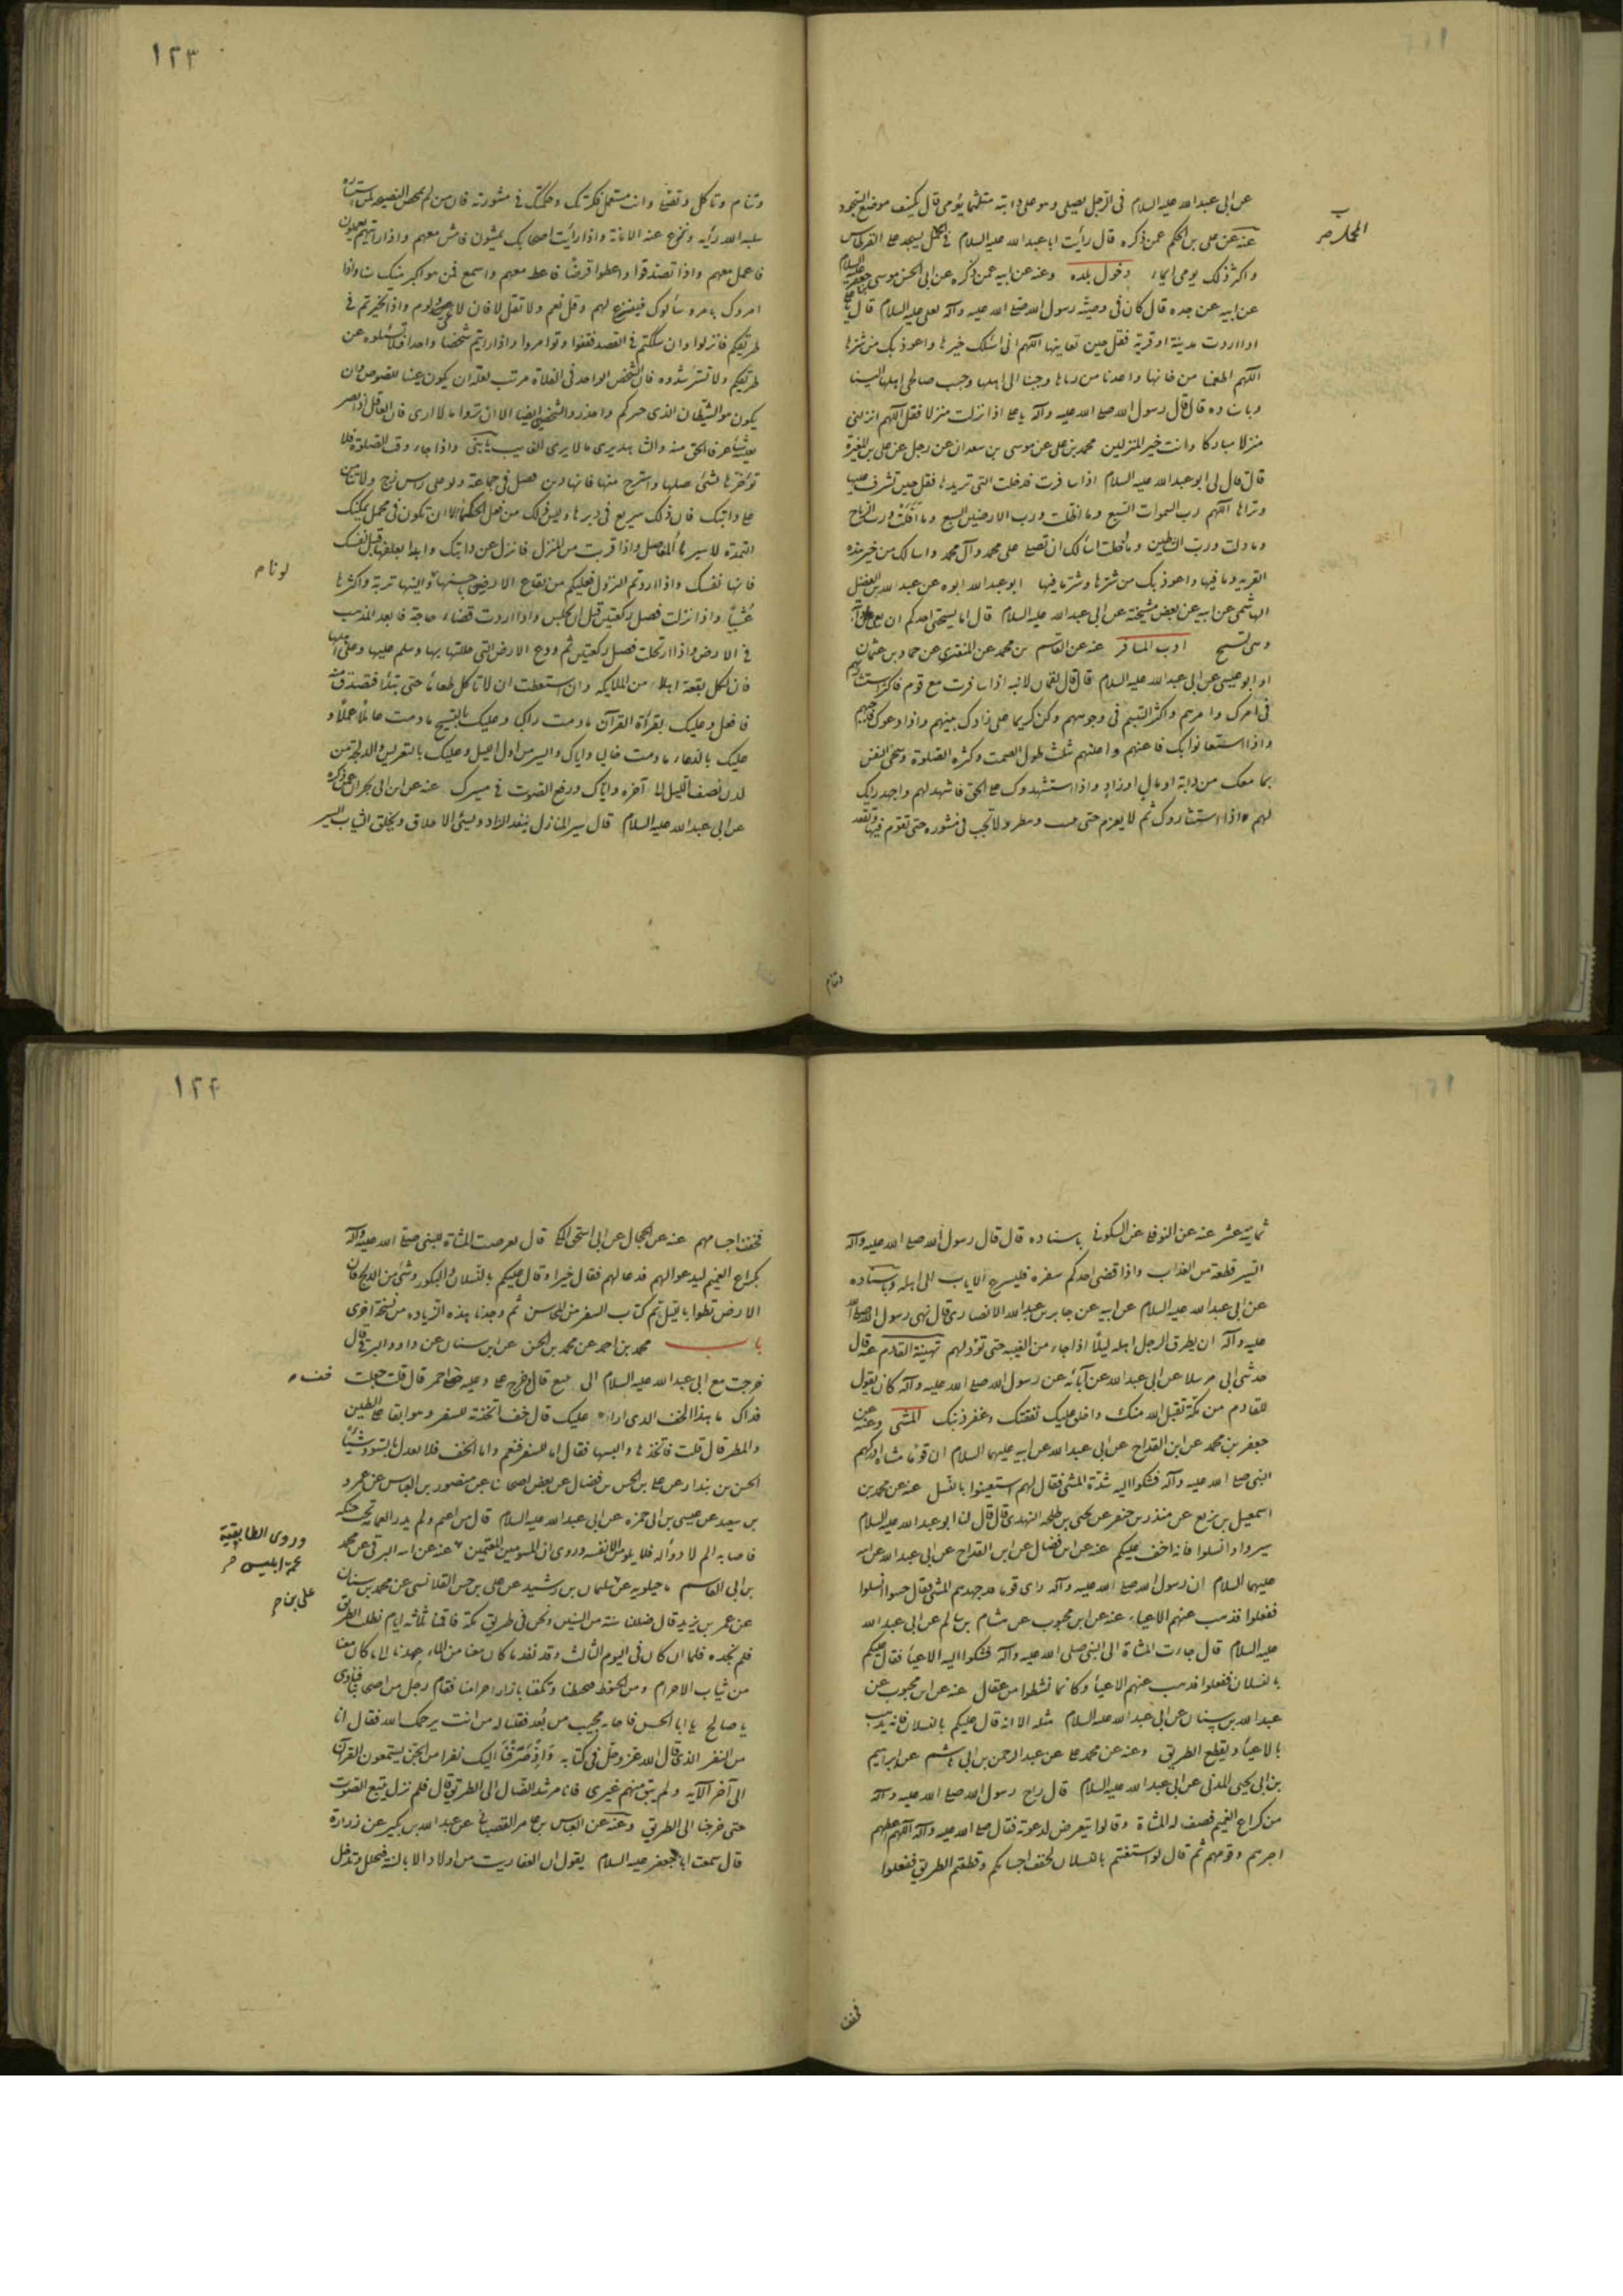 عن ابی عبدالله علیه السلام فی الرجل یصلی وهو علی دابته متلثما یؤمی قال یکشف موضع السجود
عنه عن علی بن الحکم عمن ذکره قال رأیت اباعبدالله علیه السلام فی المحمل یسجد علی القرطاس
المحمل
واکثر ذلک یومی ایماء دخول بلده وعنه عن ابیه عمن ذکره عن ابی الحسن موسی بن جعفر علیه السلام
عن ابیه عن جده قال کان فی وصیة رسول الله صلی الله علیه وآله لعلی علیه السلام قال یا علی
اذا اردت مدینة او قریة فقل حین تعاینها اللهم انی اسئلک خیرها واعوذ بک من شرها
اللهم اطعمنا من جناها واعذنا من وباها وحببنا الی اهلها وحبب صالحی اهلها الینا
وباسناده قال قال رسول الله صلی الله علیه وآله یا علی اذا نزلت منزلا فقل اللهم انزلنی
منزلا مبارکا وانت خیر المنزلین محمد بن علی عن موسی بن سعدان عن رجل عن علی بن المغیرة
قال قال لی ابو عبدالله علیه السلام اذا سافرت فدخلت التی تریدها فقل حین تشرف علیها
وتراها اللهم رب السموات السبع وما اظلت ورب الارضین السبع وما اقلت ورب الریاح
وما ذرت ورب الشیاطین وما اضلت اسألک ان تصلی علی محمد وآل محمد واسالک من خیر هذه
القریه وما فیها واعوذ بک من شرها وشر ما فیها ابو عبدالله ابوه عن عبدالله بن الفضل
الهاشمی عن ابیه عن بعض مشیخته عن ابی عبدالله علیه السلام قال اما یستحی احدکم ان
وهی تسبح ادب المسافر عنه عن القاسم بن محمد عن المنقری عن حماد بن عثمان
او ابو عیسی عن ابی عبدالله علیه السلام قال قال لقمان لابنه اذا سافرت مع قوم فاکثر استشارتهم
فی امرک وامرهم واکثر التبسم فی وجوههم وکن کریما علی زادک بینهم واذا دعوک فاجبهم
واذا استعانوا بک فاعنهم واغلبهم بثلث طول الصمت وکثرة الصلوة وسخی النفس
بما معک من دابة او مال او زاد واذا استشهدوک علی الحق فاشهد لهم واجهد رایک
لهم اذا استشاروک ثم لا یعزم حتی تثبت وتنظر ولا تجب فی مشوره حتی تقوم فیها وتقعد
وتنام
۱۲۳
وتنام وتاکل وتصلی وانت مستعمل فکرتک وحکمتک فی مشورته فان من لم یمحض النصیحه لمن استشاره
سلبه الله رأیه ونزع عنه الامانة واذا رأیت اصحابک یمشون فامش معهم واذا رأیتهم یعملون
فاعمل معهم واذا تصدقوا واعطوا قرضا فاعط معهم واسمع لمن هو اکبر منک سنا واذا
امروک بامر وسألوک فتبرع لهم وقل نعم ولا تقل لا فان لا عی ولوم واذا تحیرتم فی
طریقکم فانزلوا وان شککتم فی القصد فقفوا وتوامروا واذا رایتم شخصا واحدا فلا تسئلوه عن
طریقکم ولا تسترشدوه فان الشخص الواحد فی الفلاة مریب لعله ان یکون عینا للصوص وان
یکون هو الشیطان الذی حیرکم واحذروا الشخصین ایضا الا ان تروا ما لا اری فان العاقل اذا ابصر
بعینه شیئا عرف الحق منه والشاهد یری ما لا یری الغایب یا بنی واذا جاء وقت الصلوة فلا
تؤخرها لشیء صلها واسترح منها فانها دین وصل فی جماعة ولو علی راس زج ولا تنامن
علی دابتک فان ذلک سریع فی دبرها ولیس ذلک من فعل الحکماء الا ان تکون فی محمل یمکنک
التمدد لاسترخاء المفاصل واذا قربت من المنزل فانزل عن دابتک وابدا بعلفها قبل نفسک
لو نام
فانها نفسک واذا اردتم النزول فعلیکم من بقاع الارض باحسنها والینها تربة واکثرها
عشبا واذا نزلت فصل رکعتین قبل ان تجلس واذا اردت قضاء حاجة فابعد المذهب
فی الارض واذا ارتحلت فصل رکعتین ثم ودع الارض التی حللتها بها وسلم علیها وعلی اهلها
فان لکل بقعة اهلا من الملایکه وان استطعت ان لا تاکل طعاما حتی تبدا فتصدق منه
فافعل وعلیک بقرأة القرآن مادمت راکبا وعلیک بالتسبیح مادمت عاملا عملا و
علیک بالدعاء مادمت خالیا وایاک والسیر من اول اللیل وعلیک بالتعریس والدلجة من
لدن نصف اللیل الی آخره وایاک ورفع الصوت فی مسیرک عنه عن ابن ابی نجران عمن ذکره
عن ابی عبدالله علیه السلام قال سیر المنازل ینفد الزاد ویسئ الاخلاق ویخلق الثیاب السیر
ثمانیة عشر عنه عن النوفلی عن السکونی باسناده قال قال رسول الله صلی الله علیه وآله
السیر قطعة من العذاب واذا قضی احدکم سفره فلیسرع الایاب الی اهله وباسناده
عن ابی عبدالله علیه السلام عن ابیه عن جابر بن عبدالله الانصاری قال نهی رسول الله صلی الله
علیه وآله ان یطرق الرجل اهله لیلا اذا جاء من الغیبه حتی یؤذنهم تهنیة القادم عنه قال
حدثنی ابی مرسلا عن ابی عبدالله عن آبائه عن رسول الله صلی الله علیه وآله کان یقول
للقادم من مکة تقبل الله منک واخلف علیک نفقتک وغفر ذنبک المشی وعنه عن
جعفر بن محمد عن ابن القداح عن ابی عبدالله عن ابیه علیهما السلام ان قوما مشاة ادرکهم
النبی صلی الله علیه وآله فشکوا الیه شدة المشی فقال لهم استعینوا بالنسل عنه عن محمد بن
اسمعیل بن بزیع عن منذر بن جیفر عن یحیی بن طلحه النهدی قال قال لنا ابو عبدالله علیه السلام
سیروا وانسلوا فانه اخف علیکم عنه عن ابن فضال عن ابن القداح عن ابی عبدالله عن ابیه
علیهما السلام ان رسول الله صلی الله علیه وآله رای قوما قد جهدهم المشی فقال خبوا انسلوا
ففعلوا فذهب عنهم الاعیاء عنه عن ابن محبوب عن هشام بن سالم عن ابی عبدالله
علیه السلام قال جاءت المشاة الی النبی صلی الله علیه وآله فشکوا الیه الاعیاء فقال علیکم
بالنسلان ففعلوا فذهب عنهم الاعیاء وکانما نشطوا من عقال عنه عن ابن محبوب عن
عبدالله بن سنان عن ابی عبدالله علیه السلام مثله الا انه قال علیکم بالنسلان فانه یذهب
بالاعیاء ویقطع الطریق وعنه عن محمد علی عن عبدالرحمن بن ابی هاشم عن ابراهیم
بن ابی یحیی المدنی عن ابی عبدالله علیه السلام قال راح رسول الله صلی الله علیه وآله
من کراع الغمیم فصف له المشاة وقالوا نتعرض لدعوته فقال صلی الله علیه وآله اللهم اعطهم
اجرهم وقوهم ثم قال لو استعنتم بالنسلان لخفف اجسامکم وقطعتم الطریق ففعلوا
فخفف
۱۲۴
فخفف اجسامهم عنه عن الحجال عن ابی اسحق المکی قال تعرضت المشاة للنبی صلی الله علیه وآله
بکراع الغمیم لیدعوا لهم فدعا لهم فقال خیرا وقال علیکم بالنسلان والبکور وشئ من الدلج فان
الارض تطوی باللیل تم کتاب السفر من المحاسن ثم وجدنا هذه الزیاده من نسخة اخری
باب محمد بن احمد عن محمد بن الحسن عن ابن سنان عن داود الرقی قال
خرجت مع ابی عبدالله علیه السلام الی ینبع قال خرج علی وعلیه خف احمر قال قلت جعلت
خف
فداک ما هذا الخف الذی اراه علیک قال خف اتخذته للسفر وهو ابقا علی الطین
والمطر قال قلت فاتخذها والبسها فقال اما للسفر فنعم واما الخف فلا تعدل بالسود شیئا
الحسن بن بندار عن علی بن الحسن بن فضال عن بعض اصحابنا عن منصور بن العباس عن عمرو
بن سعید عن عیسی بن ابی حمزه عن ابی عبدالله علیه السلام قال من اعتم ولم یدر العمامه تحت حنکه
فاصابه الم لا دواء له فلا یلومن الا نفسه وروی ان المسومین المعتمین عنه عن ابیه البرقی عن محمد
وروی الطابقیة
عمة ابلیس
بن ابی القاسم ماجیلویه عن سلیمان بن رشید عن علی بن الحسن القلانسی عن محمد بن سنان
عن عمر بن یزید قال ضللنا سنة من السنین ونحن فی طریق مکة فاقمنا ثلثة ایام نطلب الطریق
فلم نجده فلما ان کان فی الیوم الثالث وقد نفد ما کان معنا من الماء عمدنا الی ما کان معنا
من ثیاب الاحرام ومن الحنوط فتحنطنا وتکفنا بازار احرامنا فقام رجل من اصحابنا فنادی
یا صالح یا ابا الحسن فاجابه مجیب من بعد فقلنا له من انت یرحمک الله فقال انا
من النفر الذی قال الله عز وجل فی کتابه وإذ صرفنا الیک نفرا من الجن یستمعون القرآن
الی آخر الآیه ولم یبق منهم غیری فانا مرشد الضال الی الطریق قال فلم نزل نتبع الصوت
حتی خرجنا الی الطریق وعنه عن العباس بن عامر القصبانی عن عبدالله بن بکیر عن زرارة
قال سمعت اباجعفر علیه السلام یقول ان العفاریت من اولاد الابالسة تتخلل وتدخل